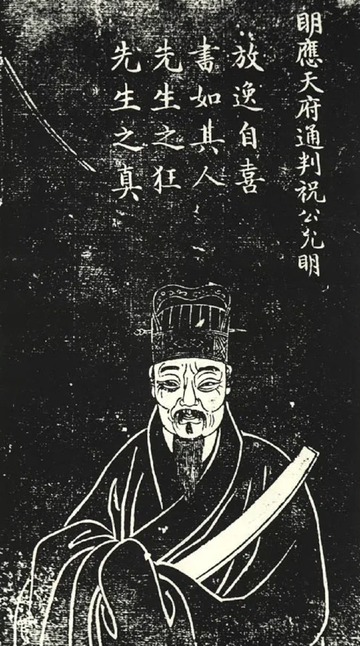 明應天府通判祝公允明
放逸自喜
書如其人
先生之狂
先生之真